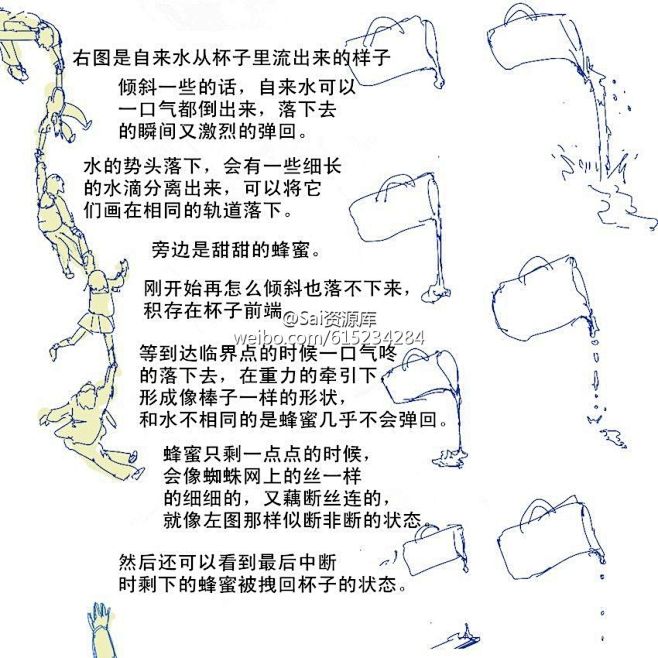 右图是自来水从杯子里流出来的样子
倾斜一些的话，自来水可以
一口气都倒出来，落下去
的瞬间又激烈的弹回。
水的势头落下，会有一些细长
的水滴分离出来，可以将它
们画在相同的轨道落下。
旁边是甜甜的蜂蜜。
刚开始再怎么倾斜也落不下来，
积存在杯子前端。
@Sai资源库
weibo.com/615234284
等到达临界点的时候一口气咚
的落下去，在重力的牵引下，
形成像棒子一样的形状，
和水不相同的是蜂蜜几乎不会弹回。
蜂蜜只剩一点点的时候，
会像蜘蛛网上的丝一样
的细细的，又藕断丝连的，
就像左图那样似断非断的状态
然后还可以看到最后中断
时剩下的蜂蜜被拽回杯子的状态。